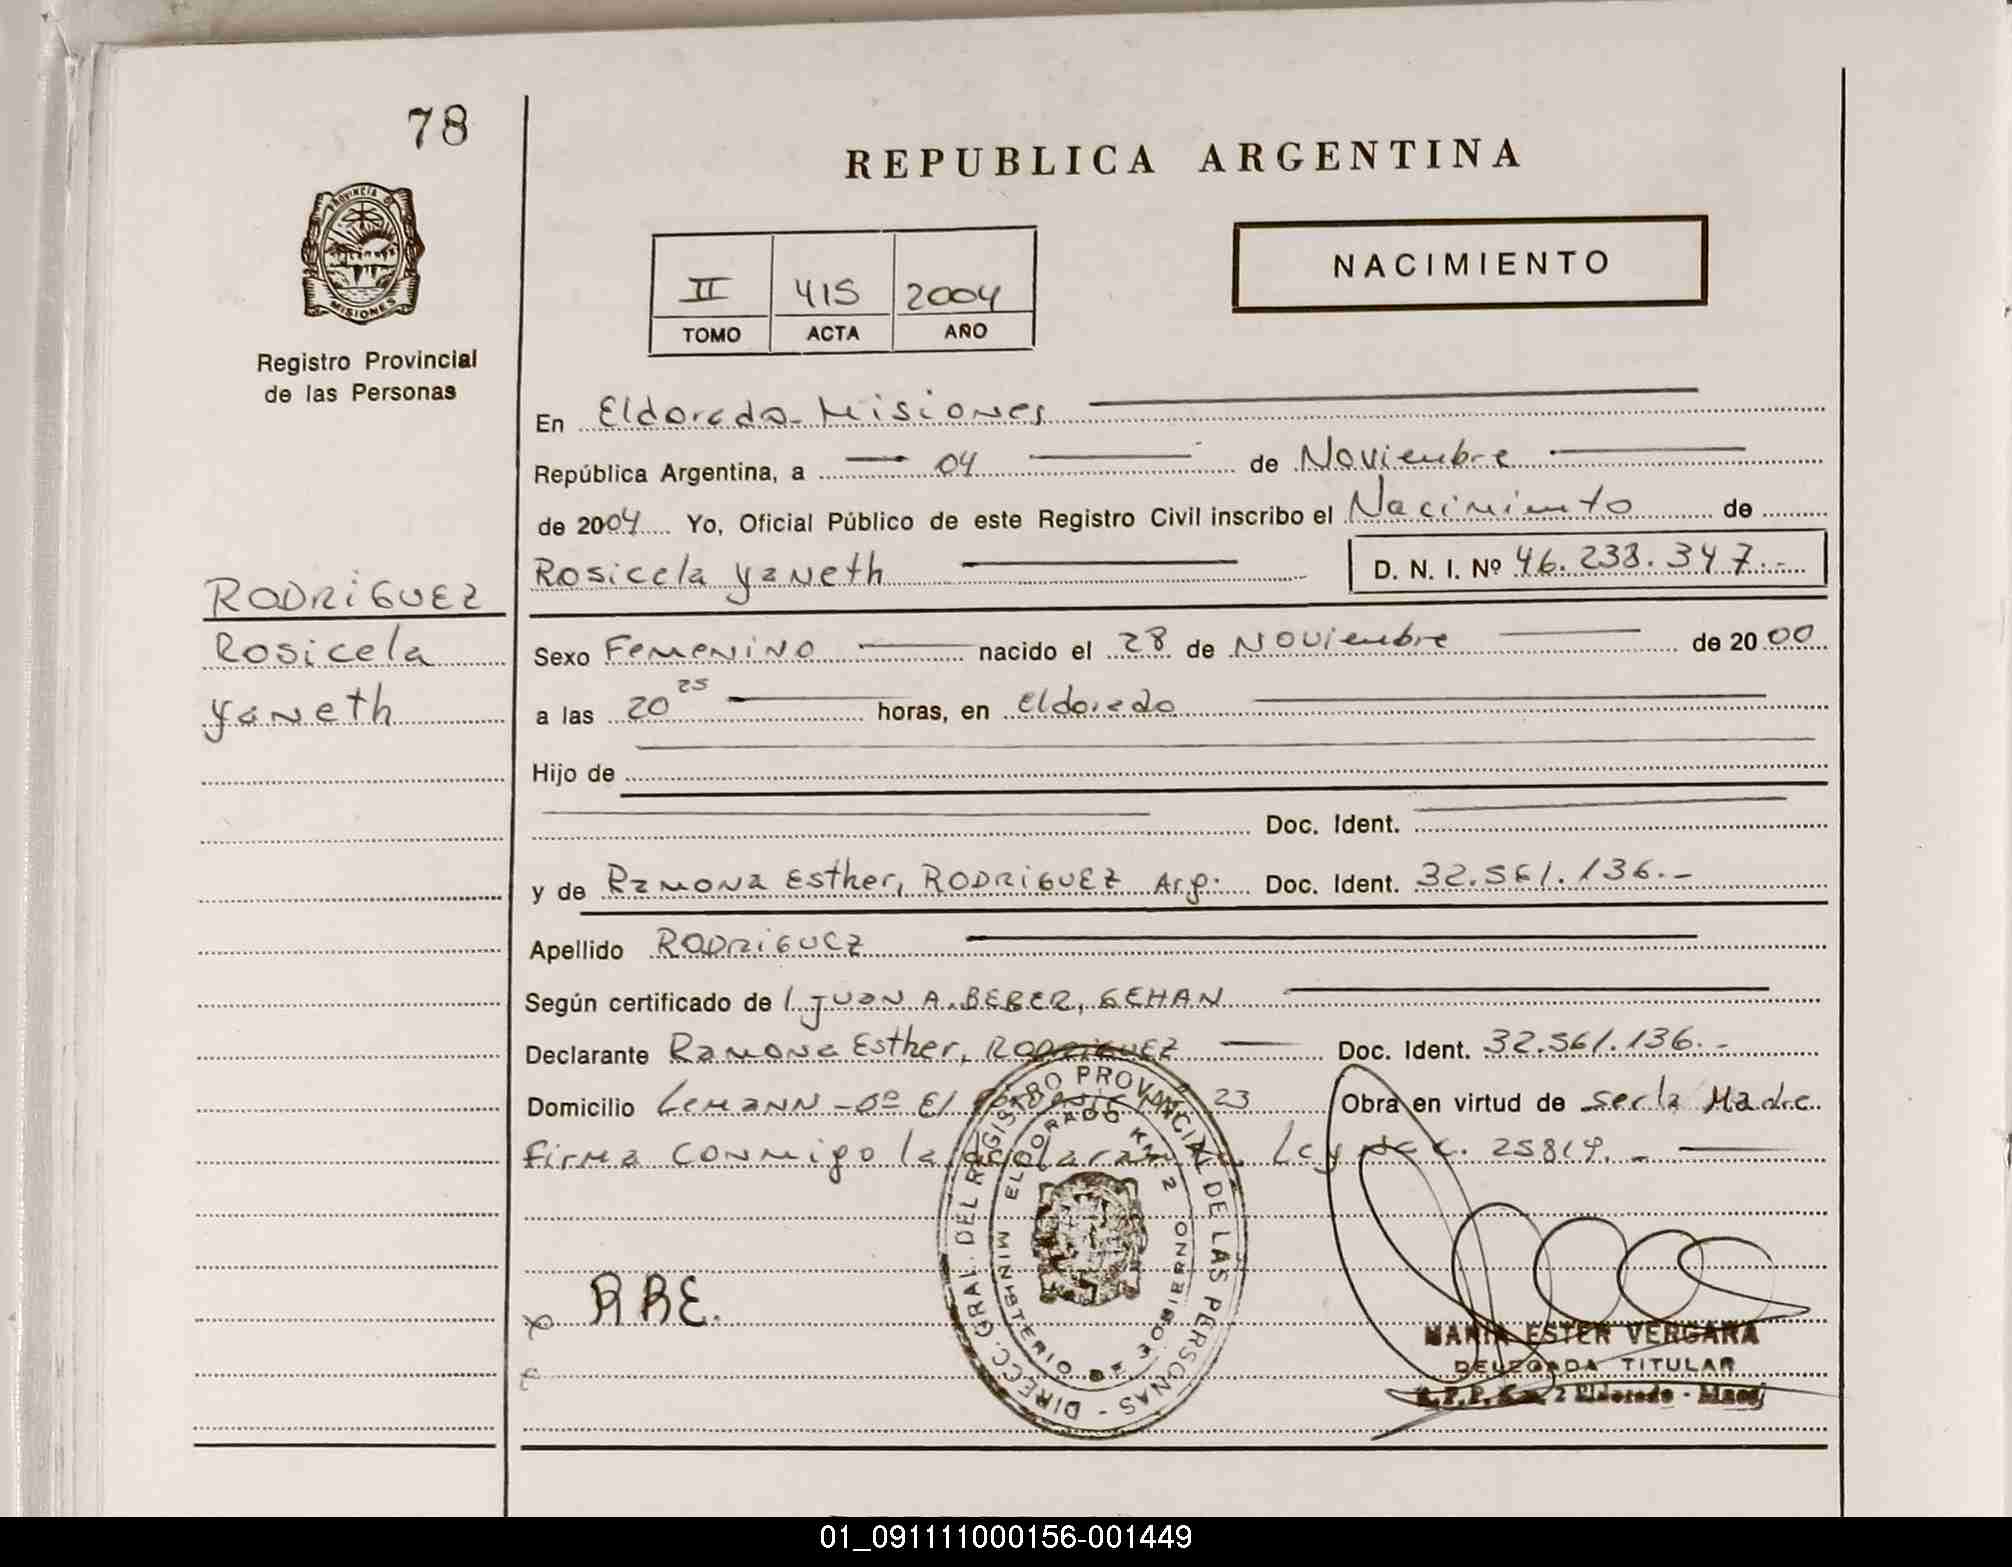 78
REPUBLICA ARGENTINA
PROVINCIA DE
MISIONES
Registro Provincial
de las Personas
II 415 2004
TOMO ACTA AÑO
NACIMIENTO
En Eldorado - Misiones
República Argentina, a 04 de Noviembre
de 2004 Yo, Oficial Público de este Registro Civil inscribo el Nacimiento de
Rosicela Yaneth D. N. I. Nº 46.238.347.-
RODRIGUEZ
Rosicela
Yaneth
Sexo Femenino nacido el 28 de Noviembre de 2000
a las 20 25 horas, en Eldorado
Hijo de
Doc. Ident.
y de Ramona Esther, RODRIGUEZ Arg. Doc. Ident. 32.561.136.-
Apellido RODRIGUEZ
Según certificado de JUAN A. BEBER, GEHAN
Declarante Ramona Esther, RODRIGUEZ Doc. Ident. 32.561.136.-
Domicilio Lemann - Bº El 23 Obra en virtud de ser la Madre
firma conmigo la declarante. Ley 25819.-
DIRECC. GRAL. DEL REGISTRO PROVINCIAL DE LAS PERSONAS -
ELDORADO KM 2
MINISTERIO DE GOBIERNO
RRE.
MARIA ESTER VERGARA
DELEGADA TITULAR
R.P.P. Km. 2 Eldorado - Mnes
01_091111000156-001449